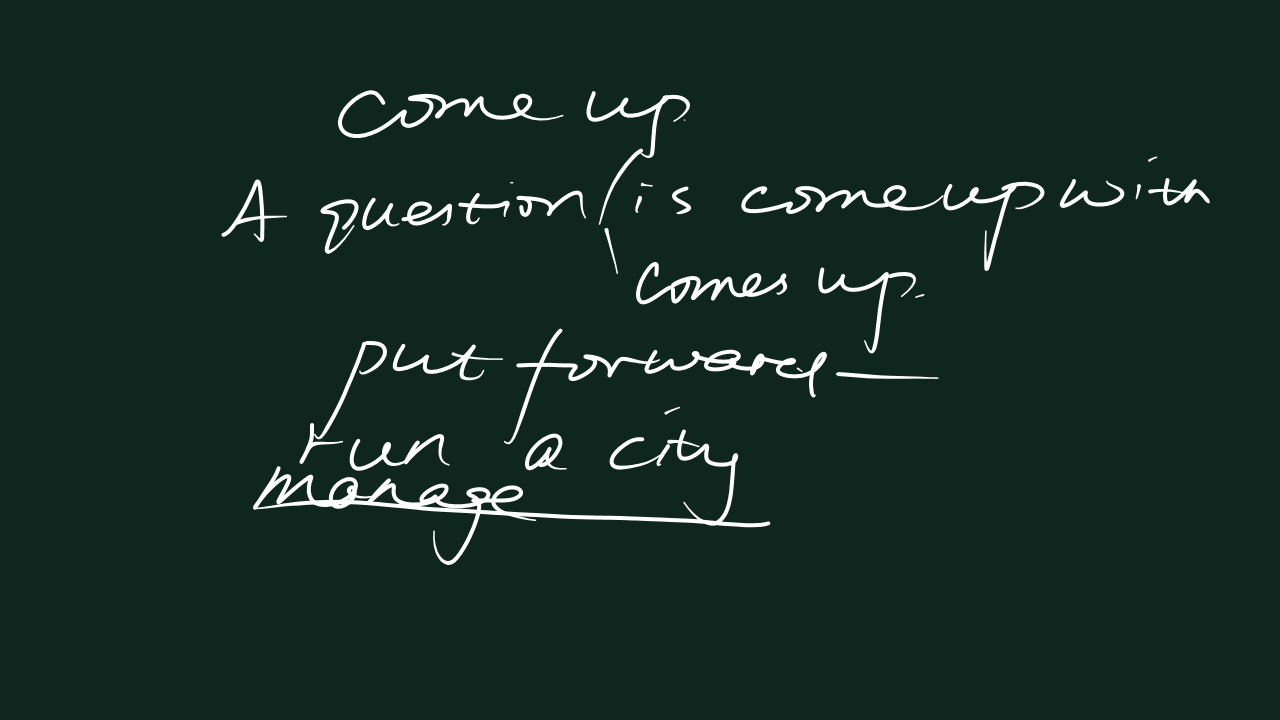 come up
A question is come up with
comes up.
put forward —
run a city
manage